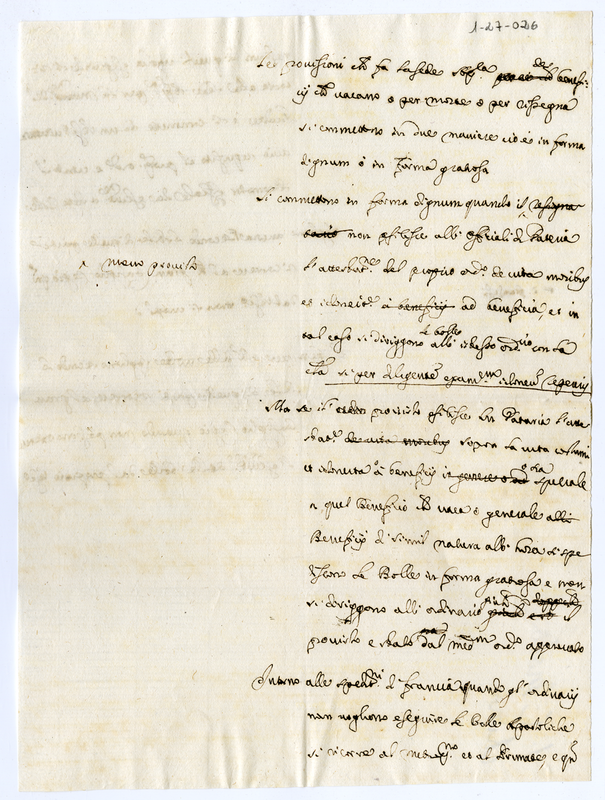 1-27-026
Le provisioni che fa la sede de benefi-
cij che vacano o per morte o per rissegna
si commettono in due maniere cioè in forma
dignum o in forma gratiosa
Si commettono in forma dignum quando il
non esibisce alli officiali di Dataria
novo provisto
l'attestat.ne del proprio ord.o de vita moribus
et idoneit.e a beneficij ad beneficia, et in
tal caso si diriggono le bolle alli ord.rio con la
si per diligente exam.
Ma se il provisto esibisce in Dataria l'atte
stat. de vita moribus sopra la vita costumi
et idoneita a beneficij in genere o ad o sia speciale
a quel beneficio che vaca o generale alli
Beneficij di simil natura alli hora si spe
discono le Bolle in forma gratiosa e non
si diriggono alli ordinarij
provisto e stato dal med.mo ord.o approvato
Intorno alle spedit.ni di francia quando gl'ordinarij
non vogliono eseguire le bolle Apostoliche
si ricorre al et al Primate, e